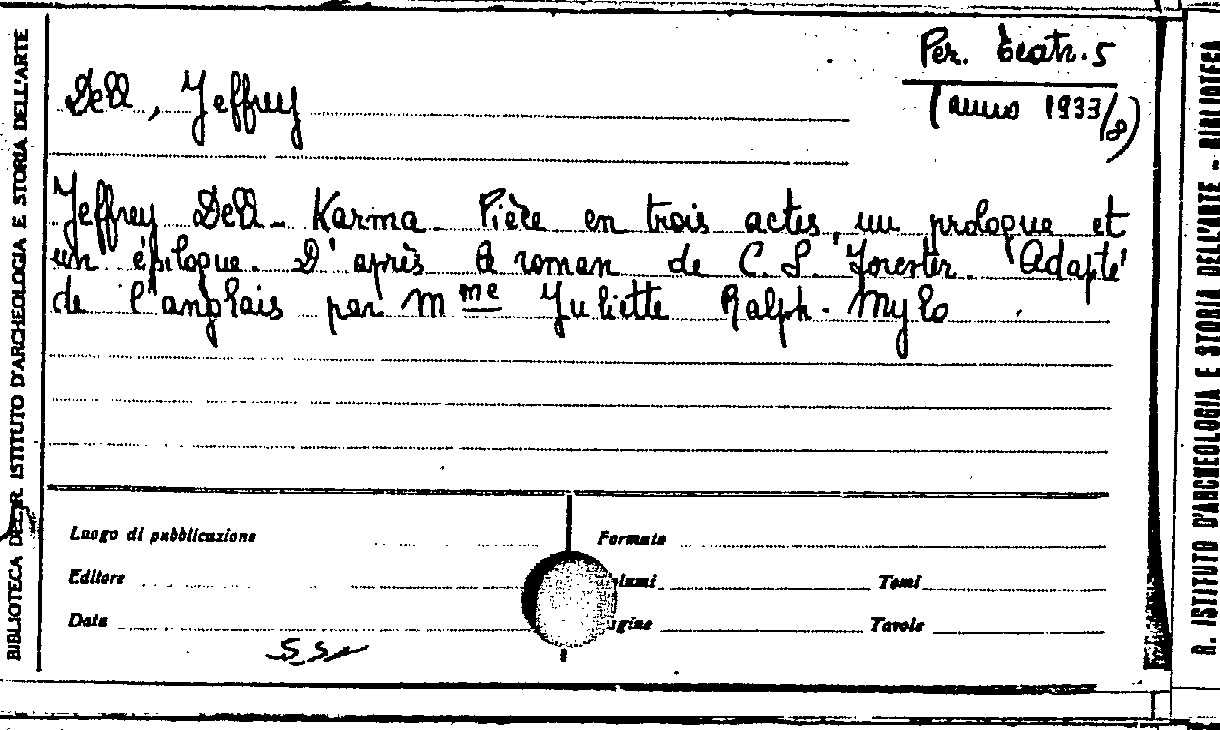 Per. Teatr. 5
(anno 1933/8)
Dell, Jeffrey
Jeffrey Dell - Karma - Pièce en trois actes, un prologue et
un épilogue. D'après le roman de C. S. Forester. Adapté
de l'anglais par Mme Juliette Ralph-Mylo
Luogo di pubblicazione
Formato
Editore
Tomi
Data
Tavole
BIBLIOTECA DELL'R. ISTITUTO D'ARCHEOLOGIA E STORIA DELL'ARTE
R. ISTITUTO D'ARCHEOLOGIA E STORIA DELL'ARTE - BIBLIOTECA